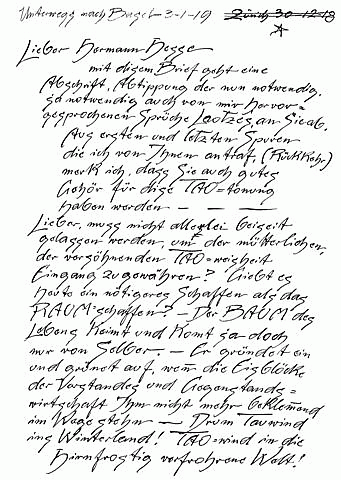 Unterwegg nach Bagel – 3-1-19 Zürich 30-12-18
Lieber Hermann Hegge
mit digem Brief geht eine
Abschrift, Abtippung der nun notwendig,
ja notwendig auch von mir hervor=
gesprochenen Sprüche Laotzes an Sie ab.
Aug ersten und letzten Spuren
die ich von Ihnen antraf, (Rückkehr)
merk ich, dagg Sie auch guteg
Gehör für dige TAO=tönung
haben werden — — —
Lieber, mugg nicht allerlei beigeit
gelaggen werden, um der mütterlichen
der versöhnenden TAO=weigheit
Eingang zu gewähren? Giebt eg
heute ein nötigereg Schaffen alg dag
RAUM=schaffen? – Der BAUM deg
Lebeng Keimt und Komt ja doch
nur von Selber. – Er gründet ein
und grünet auf, wenn die Eigblöcke
der Vorstandeg und Gegenstandg=
wirtschaft Ihm nicht mehr beklemend
im Wege stehn — Drum Tauwind
ing Winterland! TAO=wind in die
Hirnfrostig verfrohrene Welt!